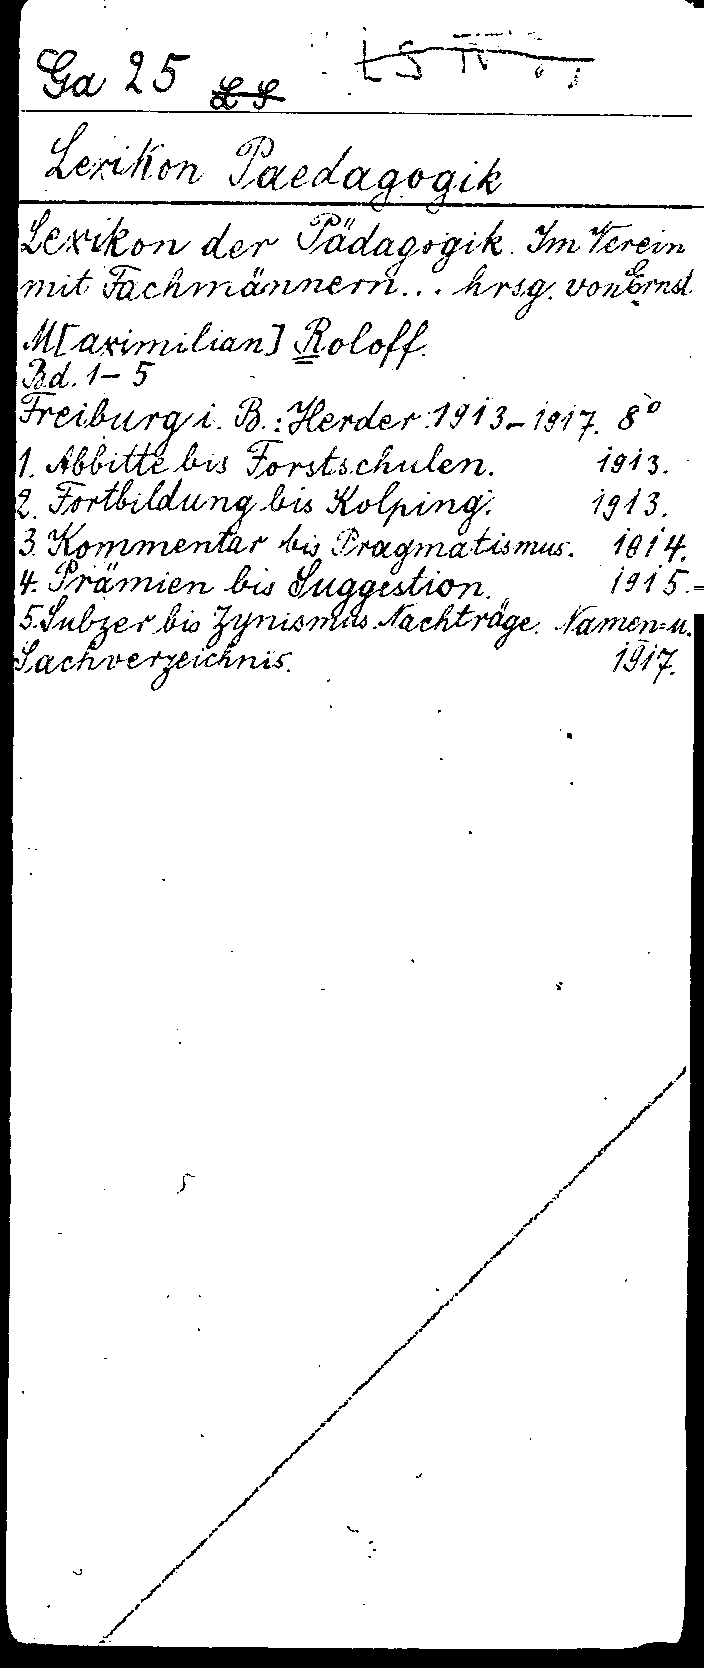 Ga 25 LS
LS IV
Lexikon Paedagogik
Lexikon der Pädagogik. Im Verein
mit Fachmännern... hrsg. von Ernst
M[aximilian] Roloff.
Bd. 1-5
Freiburg i. B.: Herder 1913-1917. 8°
1. Abbitte bis Forstschulen. 1913.
2. Fortbildung bis Kolping. 1913.
3. Kommentar bis Pragmatismus. 1914.
4. Prämien bis Suggestion. 1915.=
5. Subzer bis Zynismus. Nachträge. Namen= u.
Sachverzeichnis. 1917.